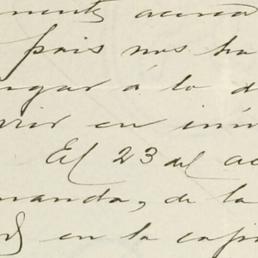 mente acerca
pais nos ha
ngar á lo d
rir en inú
El 23 del ac
manda, de la
en la capi